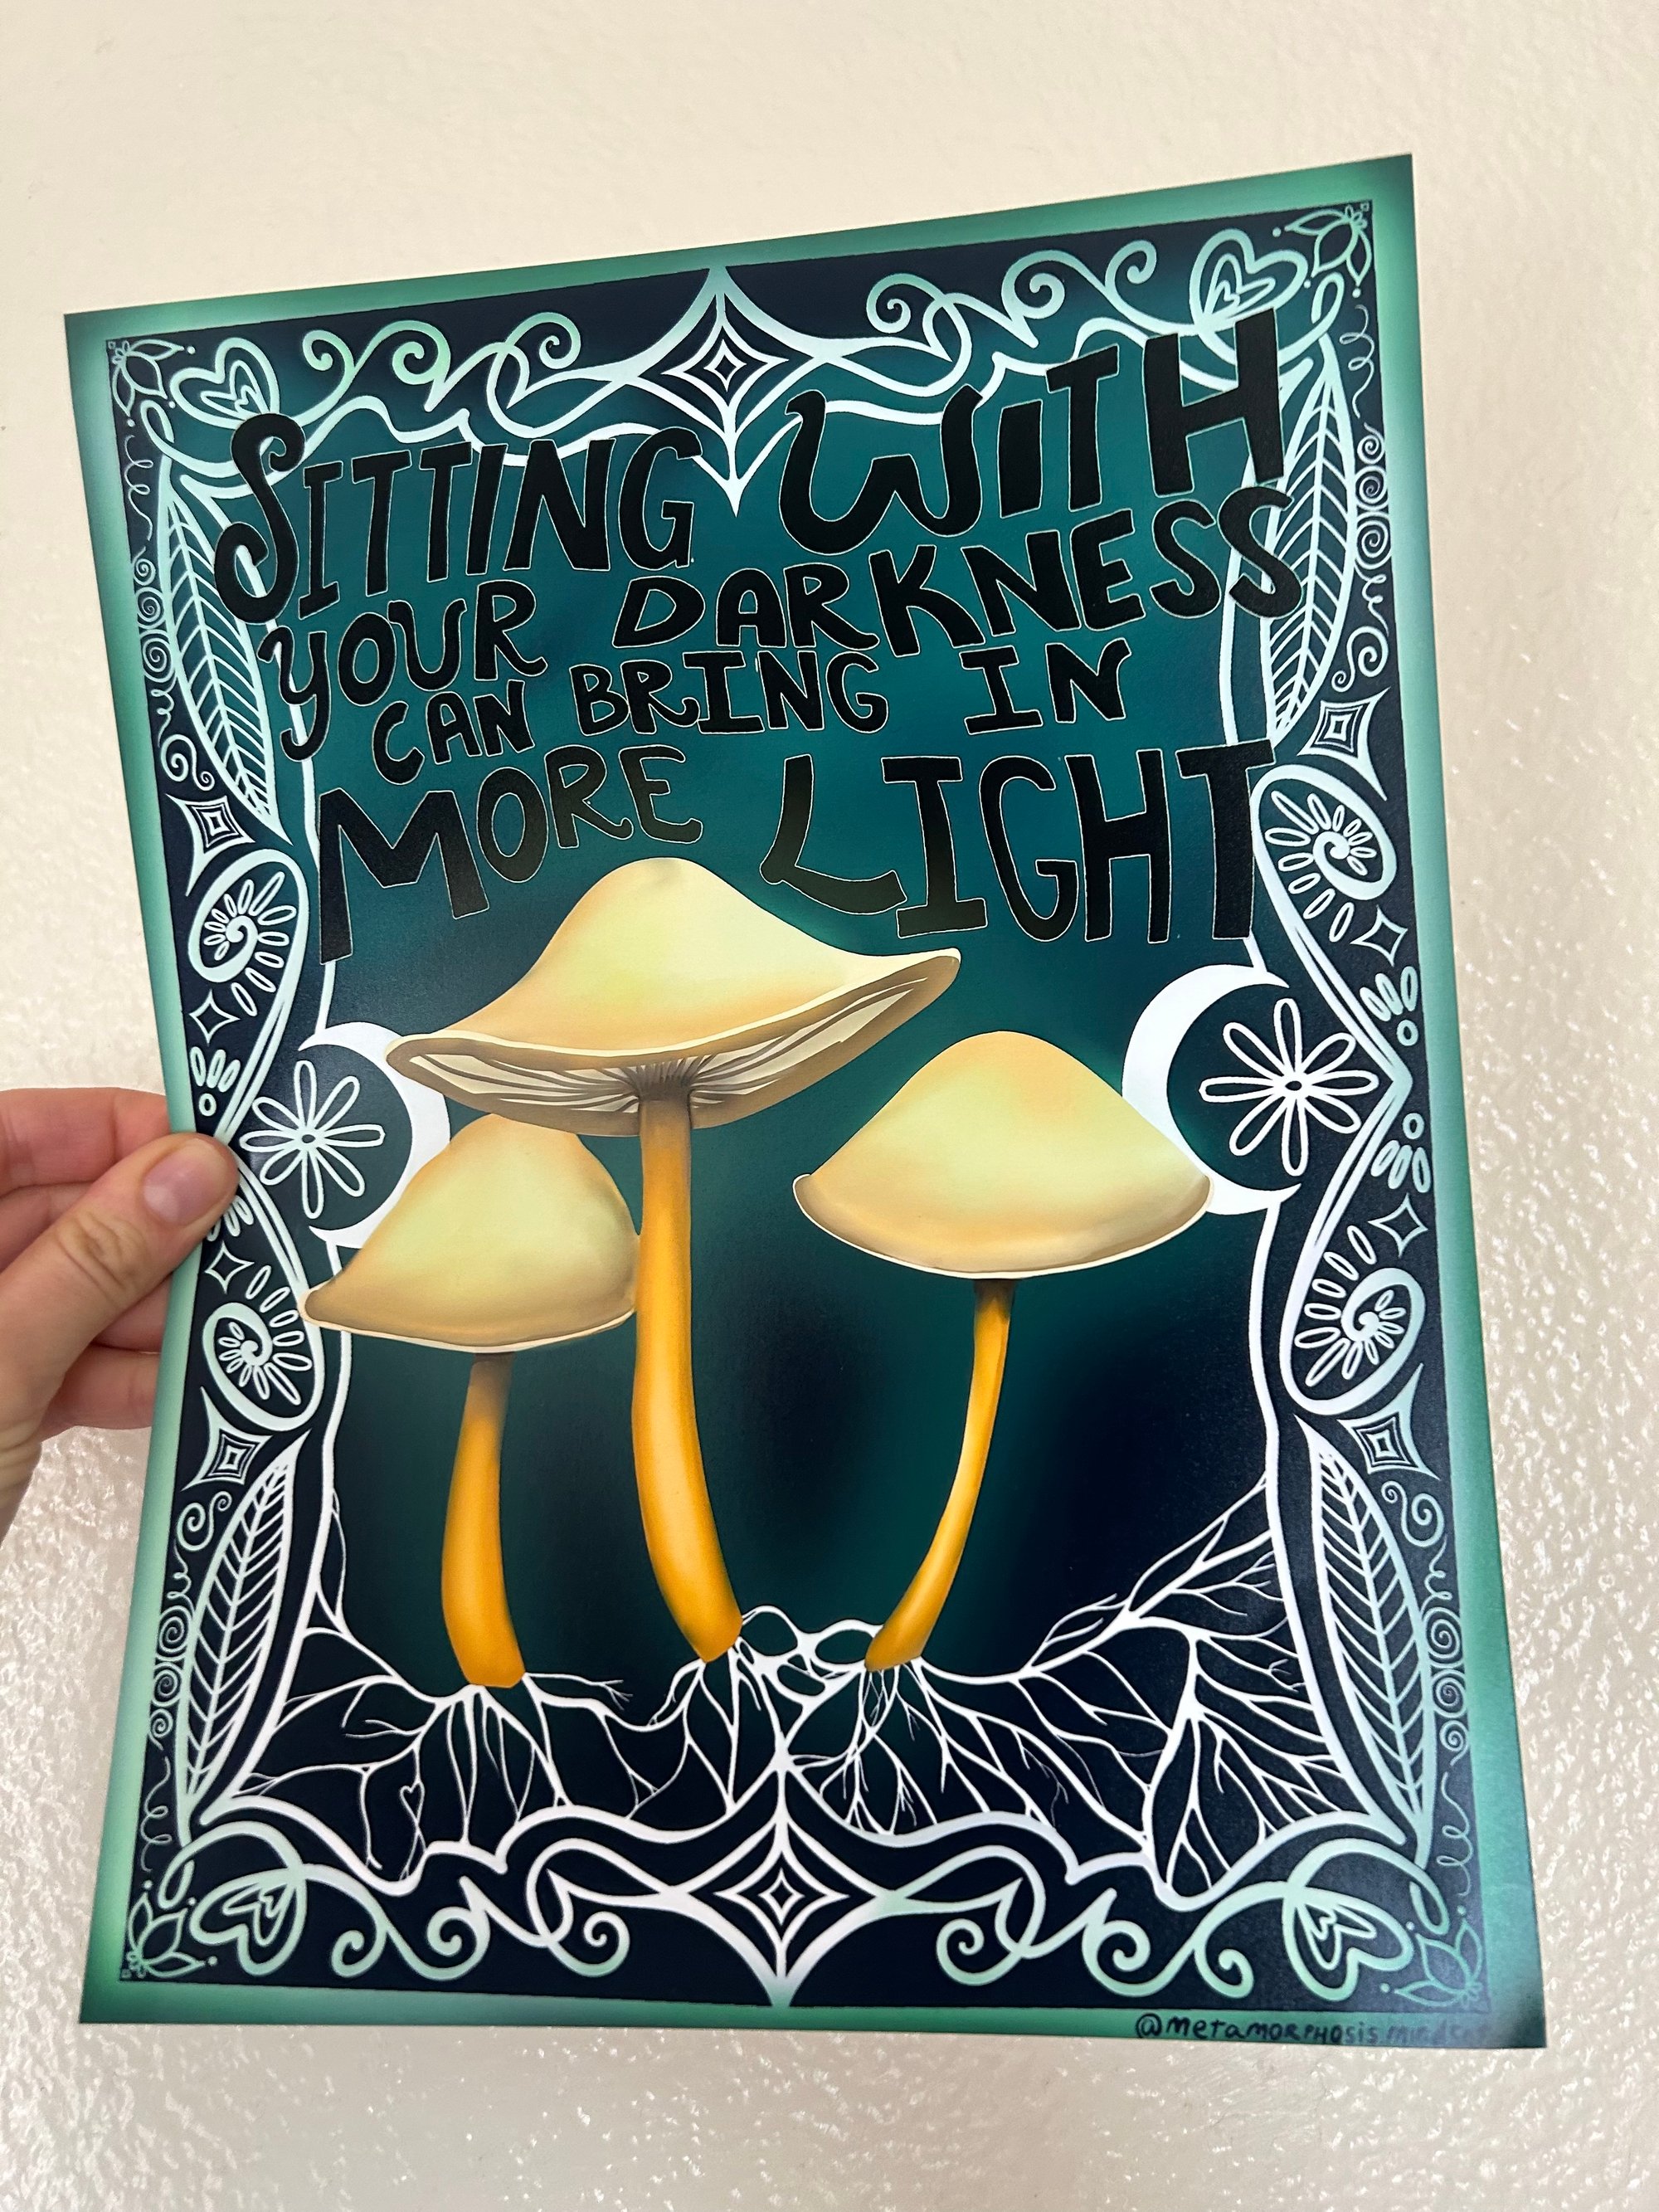 SITTING WITH
YOUR DARKNESS
CAN BRING IN
MORE LIGHT
@metamorphosis.mindset